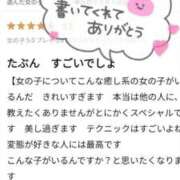 選んだ女の
書いてくれて
ありがとう
女の子５.0 プレイ
たぶん　すごいでしょ
【女の子についてこんな癒し系の女の子がい
るんだ　きれいすぎます　本当は他の人に、
教えたくありませんがとにかくスペシャルで
す　美し過ぎます　テクニックはすごいよね
変態が好きな人には最高です
こんな子がいるんですか？と思いたくなりま
す